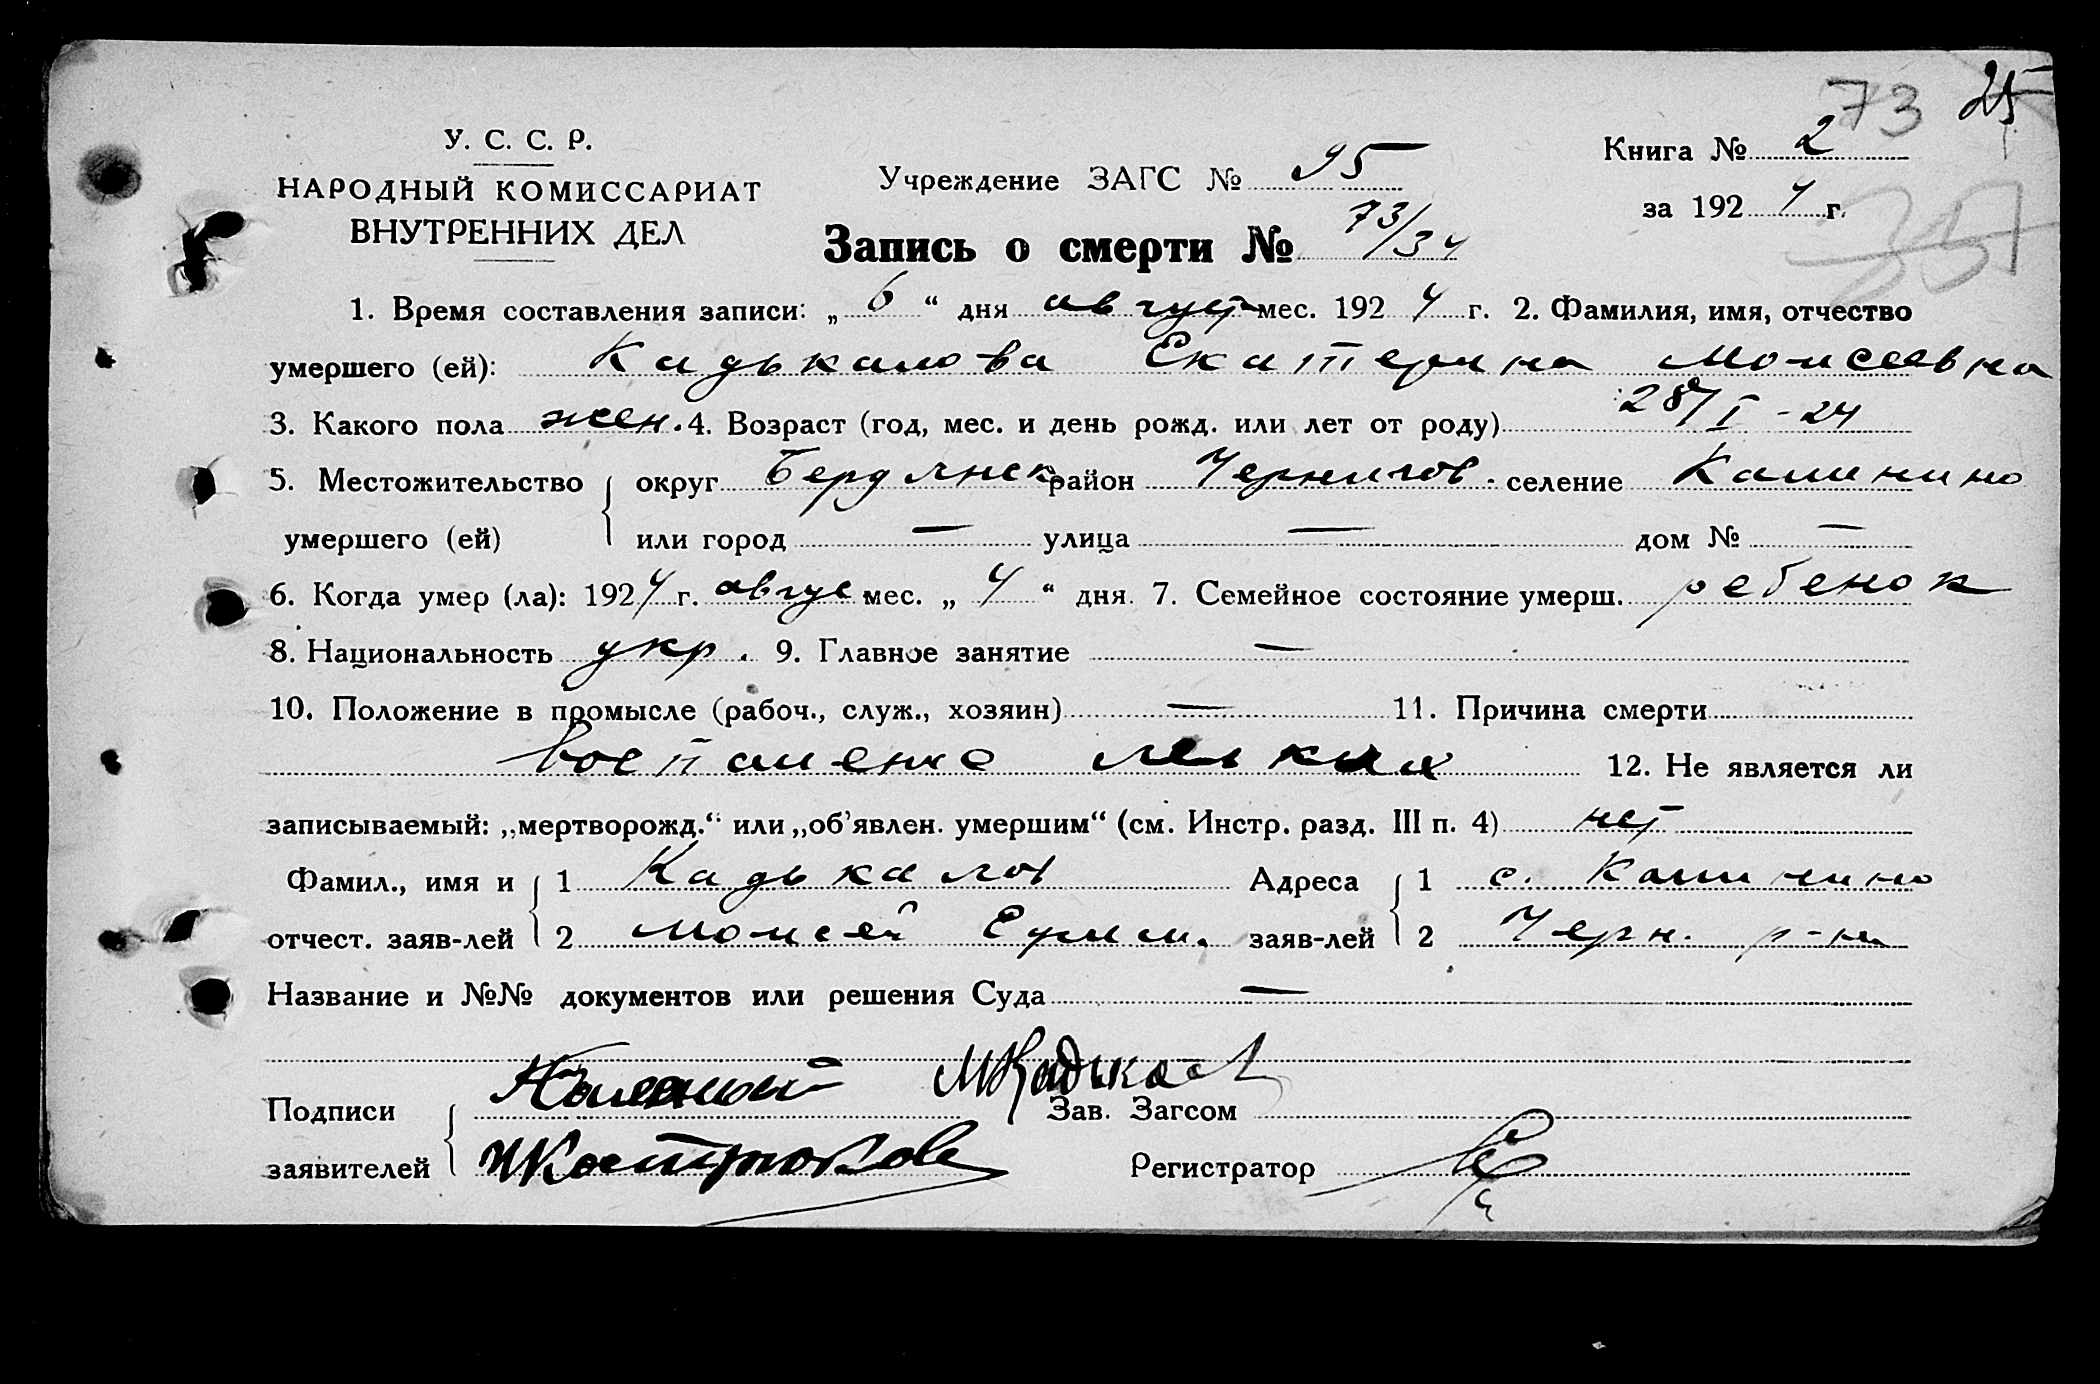 73 25
У. С. С. Р.
НАРОДНЫЙ КОМИССАРИАТ
ВНУТРЕННИХ ДЕЛ
Учреждение ЗАГС № 95
Книга № 2
за 1924 г.
357
Запись о смерти № 73/34
1. Время составления записи: „ 6 “ дня август мес. 1924 г. 2. Фамилия, имя, отчество
умершего (ей): Кадькалова Екатерина Моисеевна
3. Какого пола жен. 4. Возраст (год, мес. и день рожд. или лет от роду) 28/I - 24
5. Местожительство округ Бердянск район Чернигов. селение Калинино
умершего (ей) или город — улица — дом № —
6. Когда умер (ла): 1924 г. авгус мес. „ 4 “ дня. 7. Семейное состояние умерш. ребенок
8. Национальность укр. 9. Главное занятие —
10. Положение в промысле (рабоч., служ., хозяин) — 11. Причина смерти
Воспаление легких 12. Не является ли
записываемый: „мертворожд.“ или „об’явлен. умершим“ (см. Инстр. разд. III п. 4) нет
Фамил., имя и 1 Кадькалов Адреса 1 с. Калинино
отчест. заяв-лей 2 Моисей Ефим. заяв-лей 2 Черн. р-на
Название и №№ документов или решения Суда —
Подписи МКадькал Зав. Загсом
заявителей Регистратор